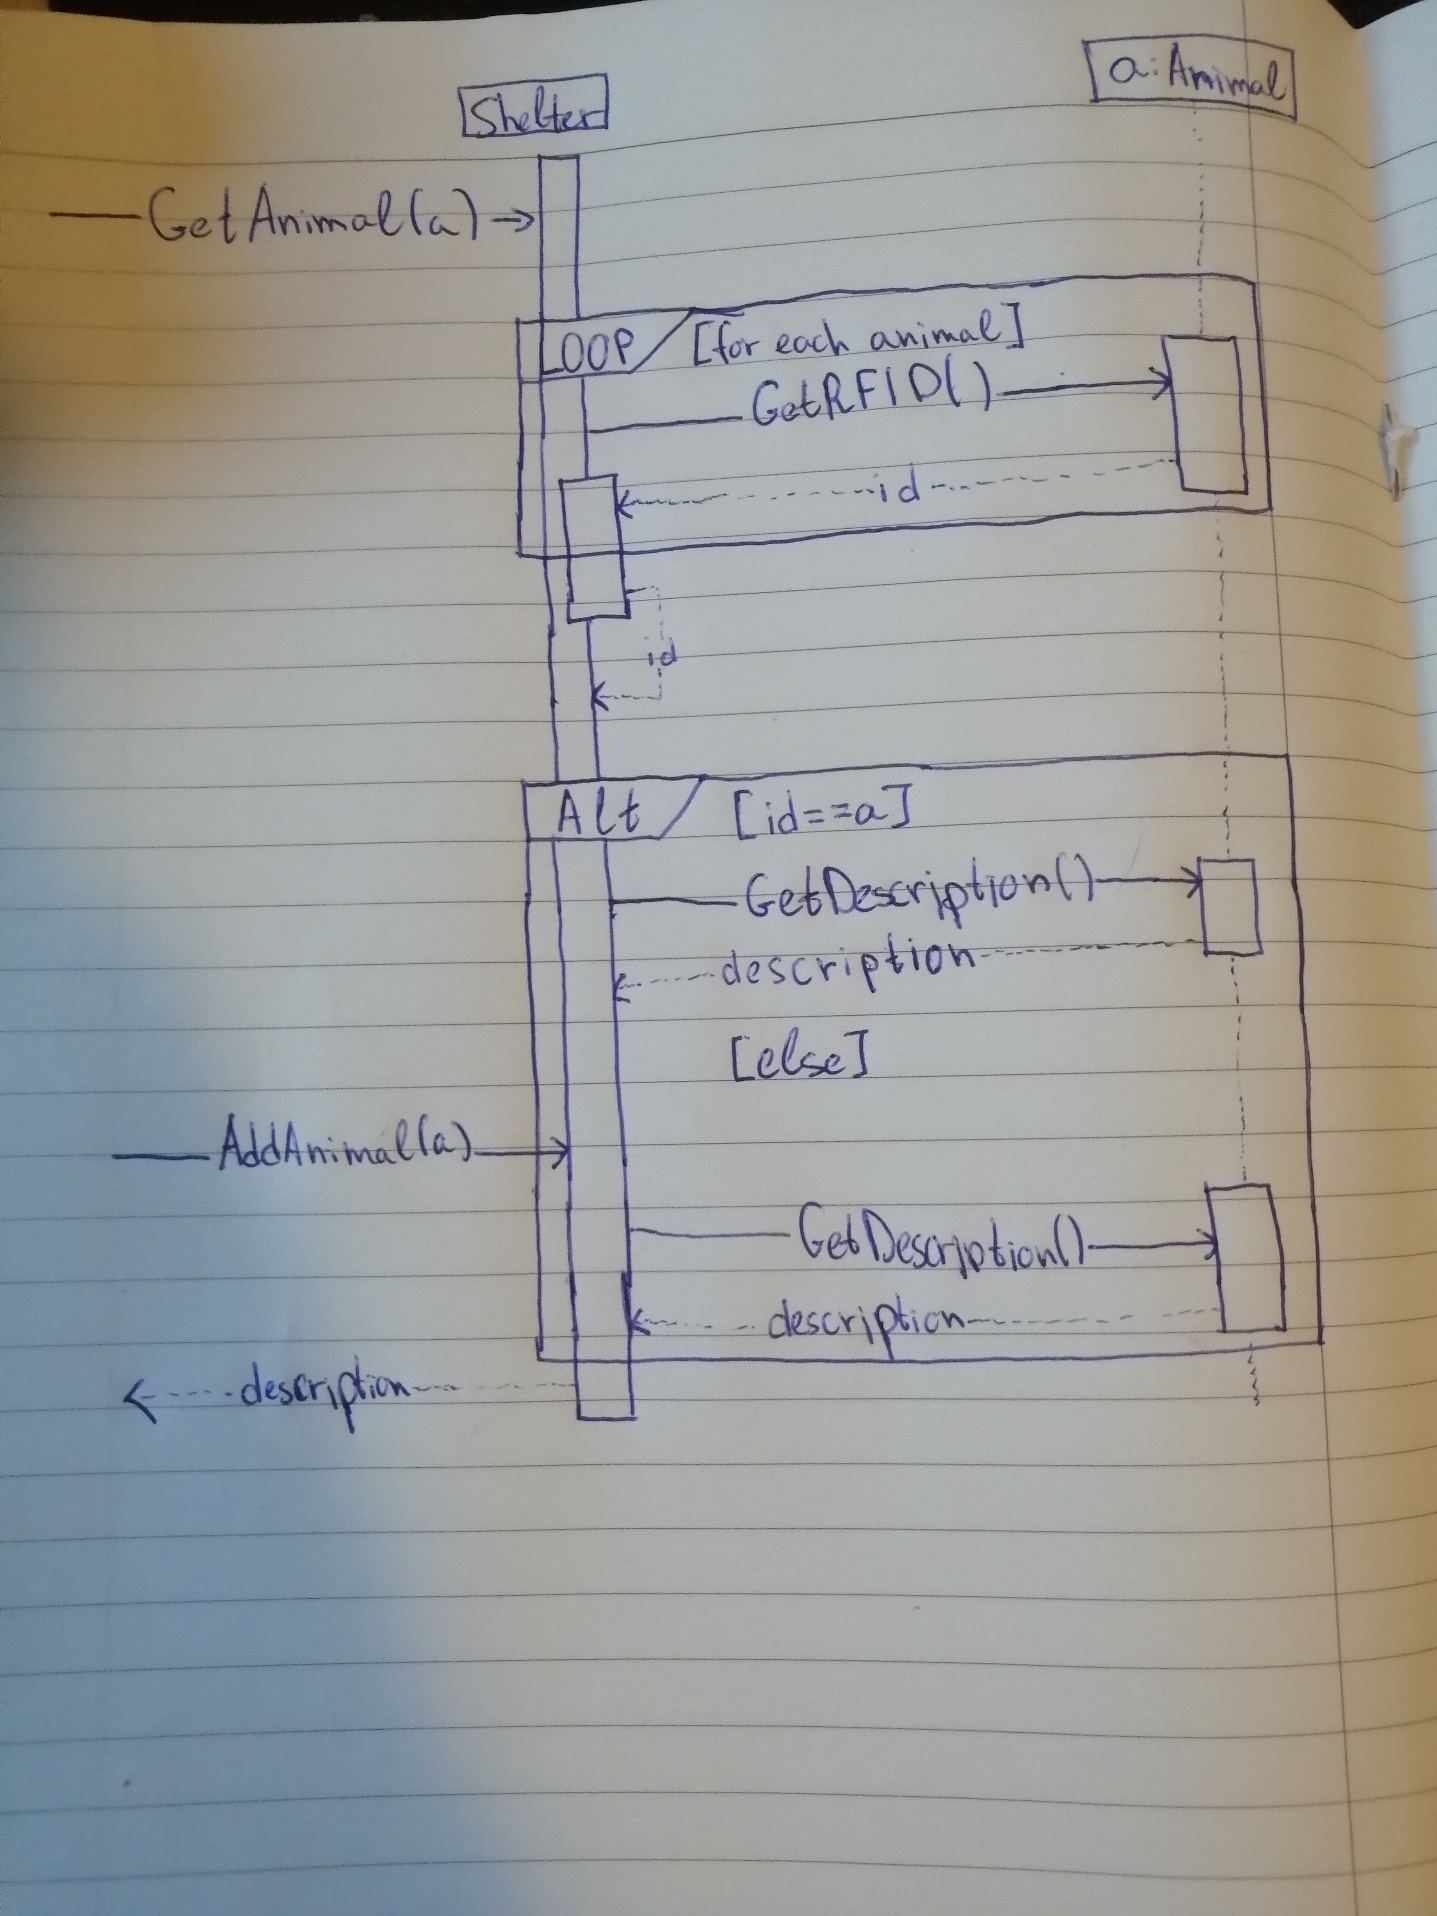 Shelter
a: Animal
GetAnimal(a)
LOOP [for each animal]
GetRFID()
id
id
Alt [id==a]
GetDescription()
description
[else]
AddAnimal(a)
GetDescription()
description
description